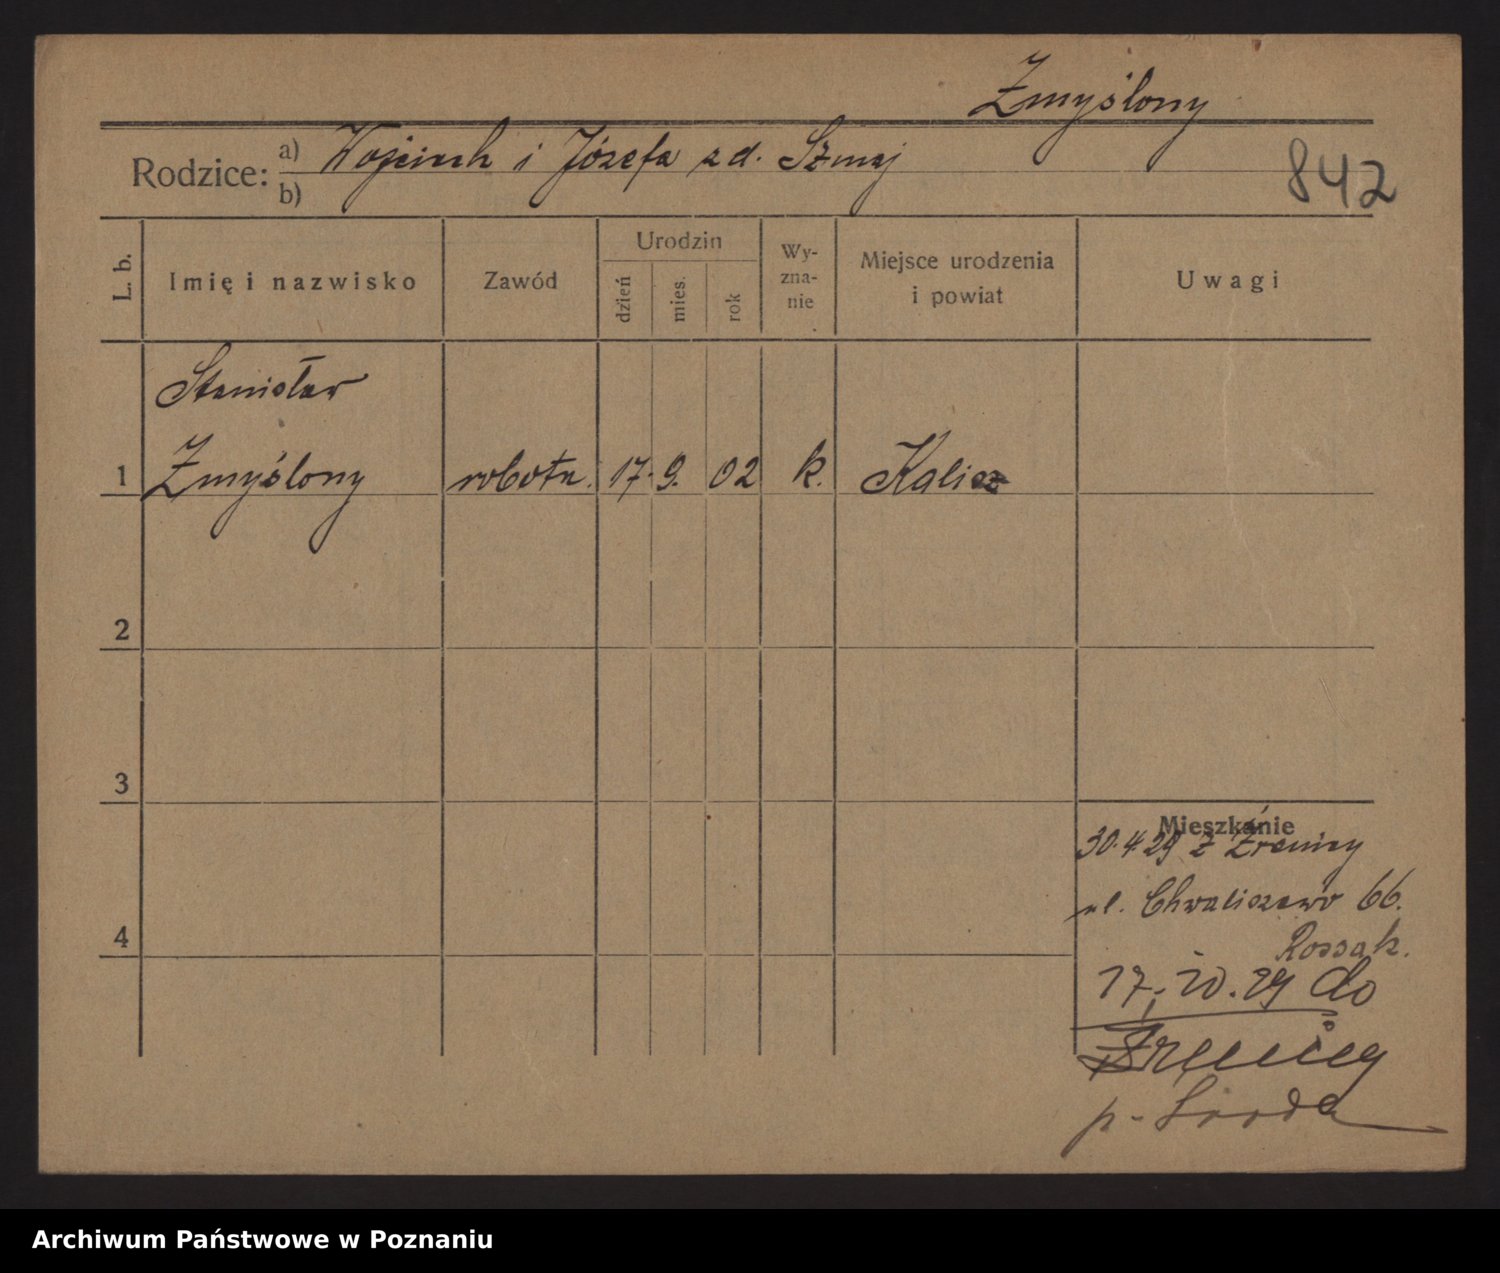 Zmyślony
Rodzice: a) Wojciech i Józefa z d. Szmaj
b)
842
L. b.
Imię i nazwisko
Zawód
Urodzin
dzień
mies.
rok
Wy-
zna-
nie
Miejsce urodzenia
i powiat
Uwagi
Stanisław
1 Zmyślony robotn. 17. 9. 02 k. Kalisz
2
3
4
Mieszkanie
30.4.29 z Źrenicy
ul. Chwaliszewo 66.
Rossak.
17.10.29 do
Źrenicy
p. Środa
Archiwum Państwowe w Poznaniu